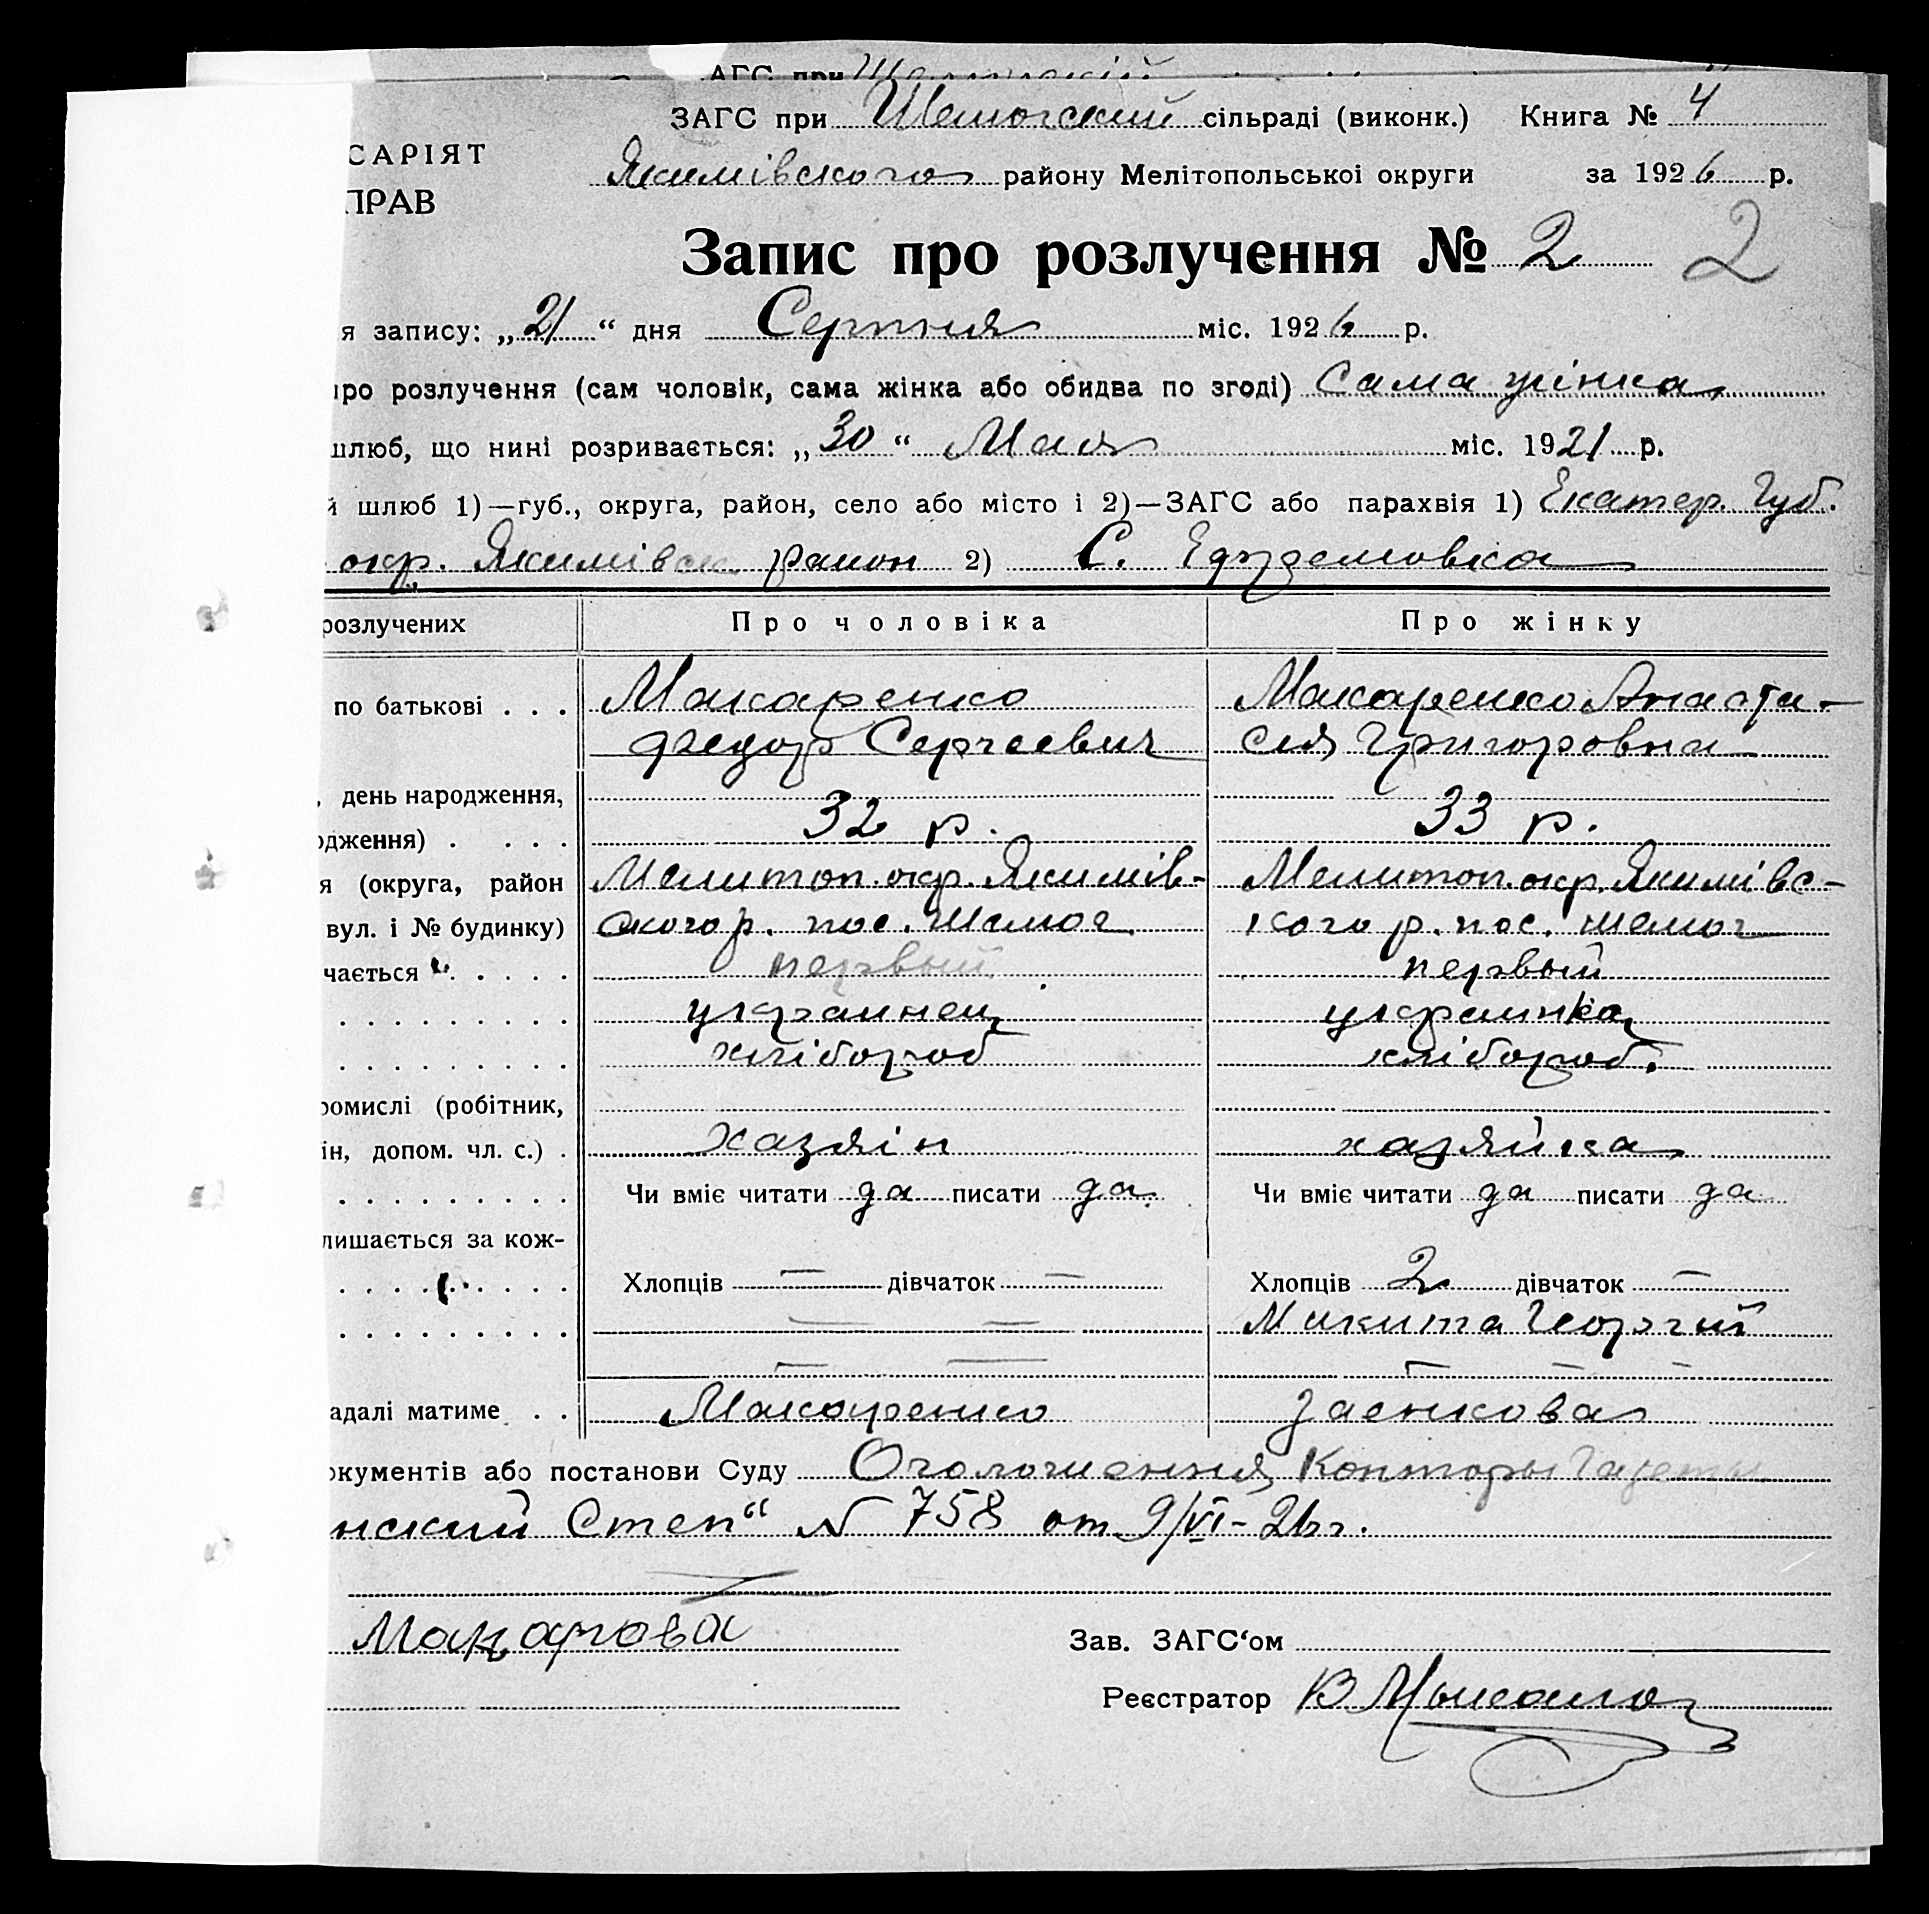 АГС при
ЗАГС при Шемогский сільраді (виконк.) Книга № 4
САРІЯТ
Якимівского району Мелітопольськоі округи за 1926 р.
ПРАВ
Запис про розлучення № 2 2
я запису: „21“ дня Серпня міс. 1926 р.
про розлучення (сам чоловік, сама жінка або обидва по згоді) Сама жінка
шлюб, що нині розривається: „30“ Мая міс. 1921 р.
й шлюб 1)—губ., округа, район, село або місто і 2)—ЗАГС або парахвія 1) Екатер. Губ.
окр. Якимівск район 2) С.
розлучених Про чоловіка Про жінку
по батькові . . . Макаренко Макаренко Анаста-
Федор Сергеевич сия Григоровна
, день народження,
одження) . . . . 32 р. 33 р.
я (округа, район Мелитоп. окр. Якимів- Мелитоп. окр. Якимівс-
вул. і № будинку) ского р. пос. Шемог кого р. пос. Шемог
чається . . . . первый первый
украинец украинка
хлібороб хлібороб.
ромислі (робітник,
ін, допом. чл. с.) . хазяін хазяйка
Чи вміє читати да писати да. Чи вміє читати да писати да
лишається за кож-
Хлопців — дівчаток — Хлопців 2 дівчаток —
— — Микита Георгий
— — — — —
адалі матиме . . Макаренко Заенкова
окументів або постанови Суду Оголошення Конторы Газеты
нский Степ“ N 758 от 9/VI-26 г.
Зав. ЗАГС‘ом
Реєстратор В